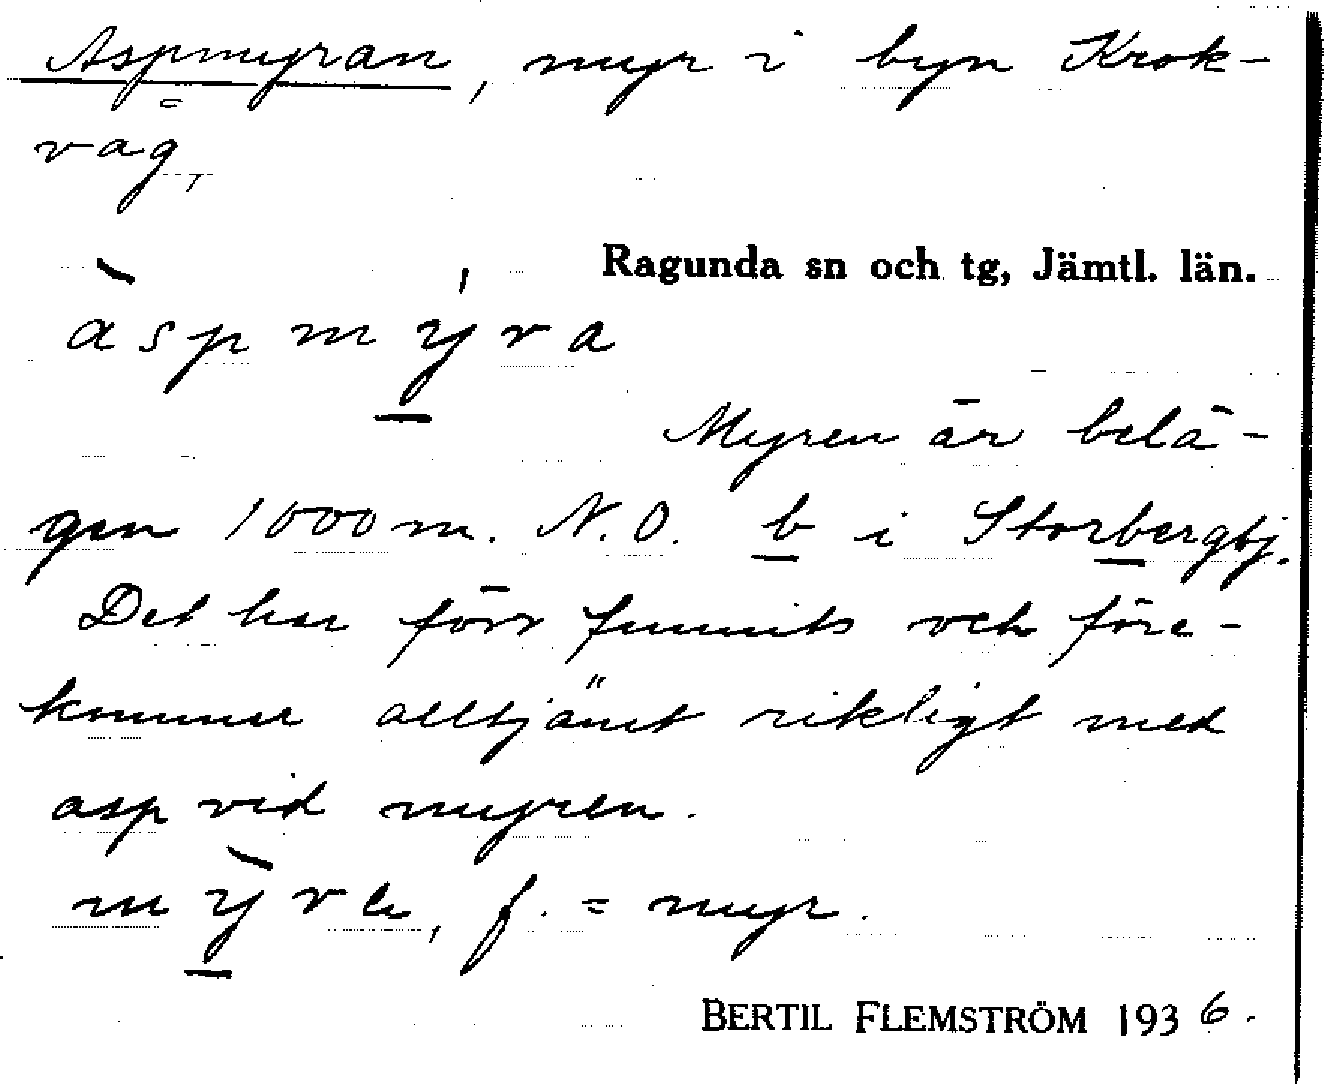 Aspmyran, myr i byn Krok-
våg,
Ragunda sn och tg, Jämtl. län.
àspmý̠ra
Myren är belä-
gen 1000 m. N.O. b i Storbergbj.
Det har förr funnits och före-
kommer alltjämt rikligt med
asp vid myren.
mỳ̠r, f. = myr.
BERTIL FLEMSTRÖM 1936.